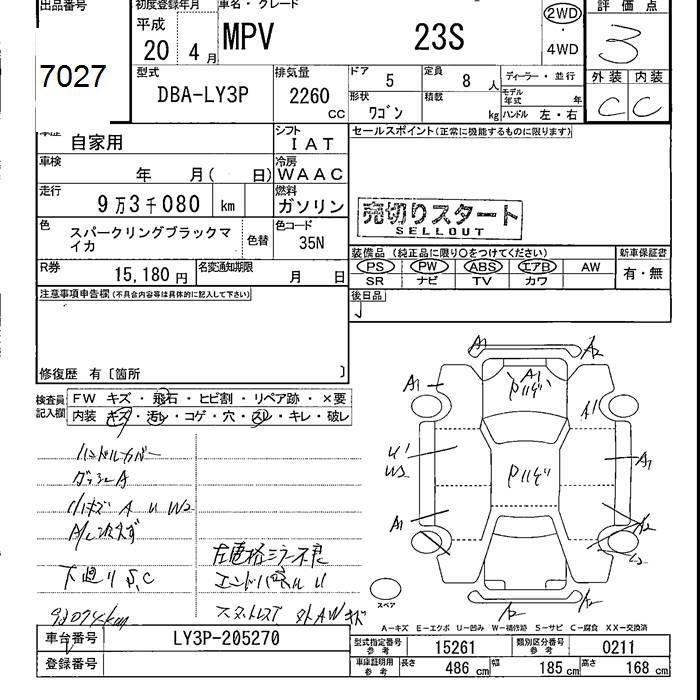 出品番号 初度登録年月 車名・グレード 評価点
平成 20 4月 MPV 23S 2WD ・ 4WD 3
7027
型式 排気量 ドア 5 定員 8人 ディーラー・並行 外装 内装
DBA-LY3P 2260 CC 形状 ワゴン 積載 kg モデル年式 年 ハンドル 左・右 C C
車歴 自家用 シフト IAT セールスポイント(正常に機能するものに限ります)
車検 年 月( 日) 冷房 WAAC
走行 9万3千080 km 燃料 ガソリン
売切りスタート
SELLOUT
色 スパークリングブラックマイカ 色替 色コード 35N
装備品 (純正品に限り○をつけてください) 新車保証書
R券 15,180円 名変通知期限 月 日
PS PW ABS エアB AW 有・無
SR ナビ TV カワ
注意事項申告欄(不具合内容等は具体的に記入して下さい) 後日品
修復歴 有〔箇所 〕
検査員記入欄 FW キズ・飛石・ヒビ割・リペア跡・×要
内装 キズ・汚レ・コゲ・穴・スレ・キレ・破レ
A1 A2
A1 A1 A1
Pハゲ
U1 Pハゲ A1
W2
A1 A2
ハンドルカバー
ダッシュA
小キズ A U W2
下廻りS,C
エンドパネルU
スタットレスT 外AWキズ
93074km
スペア
A2 A2
A-キズ E-エクボ U-凹み W-補修跡 S-サビ C-腐食 XX-交換済
車台番号 LY3P-205270 型式指定番号 参考 15261 類別区分番号 参考 0211
登録番号 車庫証明用 参考 長さ 486 cm 幅 185 cm 高さ 168 cm